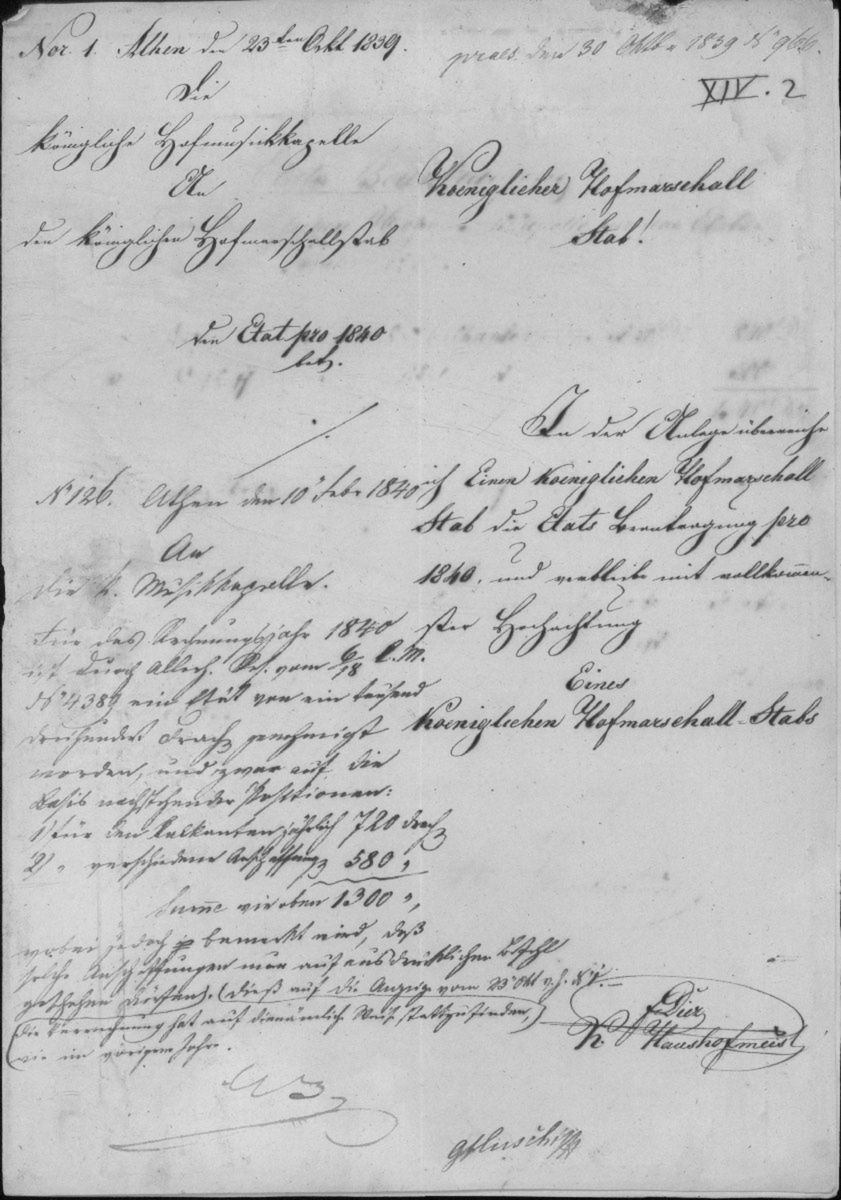 Nor. 1. Athen den 23ten Okt 1839.
praes. den 30 Oktb. 1839 No 966.
XIV. 2
Die
königliche Hofmusickkapelle
An
den königlichen Hofmarschallstab
den Etat pro 1840
betr.
Koeniglicher Hofmarschall
Stab!
In der Anlage überreiche
ich Einen Koeniglichen Hofmarschall
Stab die Etats Beantragung pro
1840, und verbleibe mit vollkommen-
ster Hochachtung
Eines
Koeniglichen Hofmarschall-Stabs
F Dietz
K. Haushofmeist
No 126. Athen den 10 Febr 1840
An
die K. Musikkapelle.
Für das Rechnungsjahr 1840
ist durch Allerh. Res. vom 6/18 l. M.
No 4389 ein Etat von ein tausend
dreihundert Drach. genehmigt
worden, und zwar auf die
Basis nachstehender Positionen:
1) für den Kalkanten jährlich 720 Drach
2) " verschiedene Anschaffung 580 "
Summe wie oben 1300 "
wobei jedoch bemerkt wird, daß
solche Anschaffungen nur auf ausdrücklichen Befehl
geschehen dürfen. (Dieß auf die Anzeige vom 23 Okt v. J. No 1.
(Die Verrechnung hat auf die nämliche Weise stattzufinden,)
wie im vorigen Jahre.